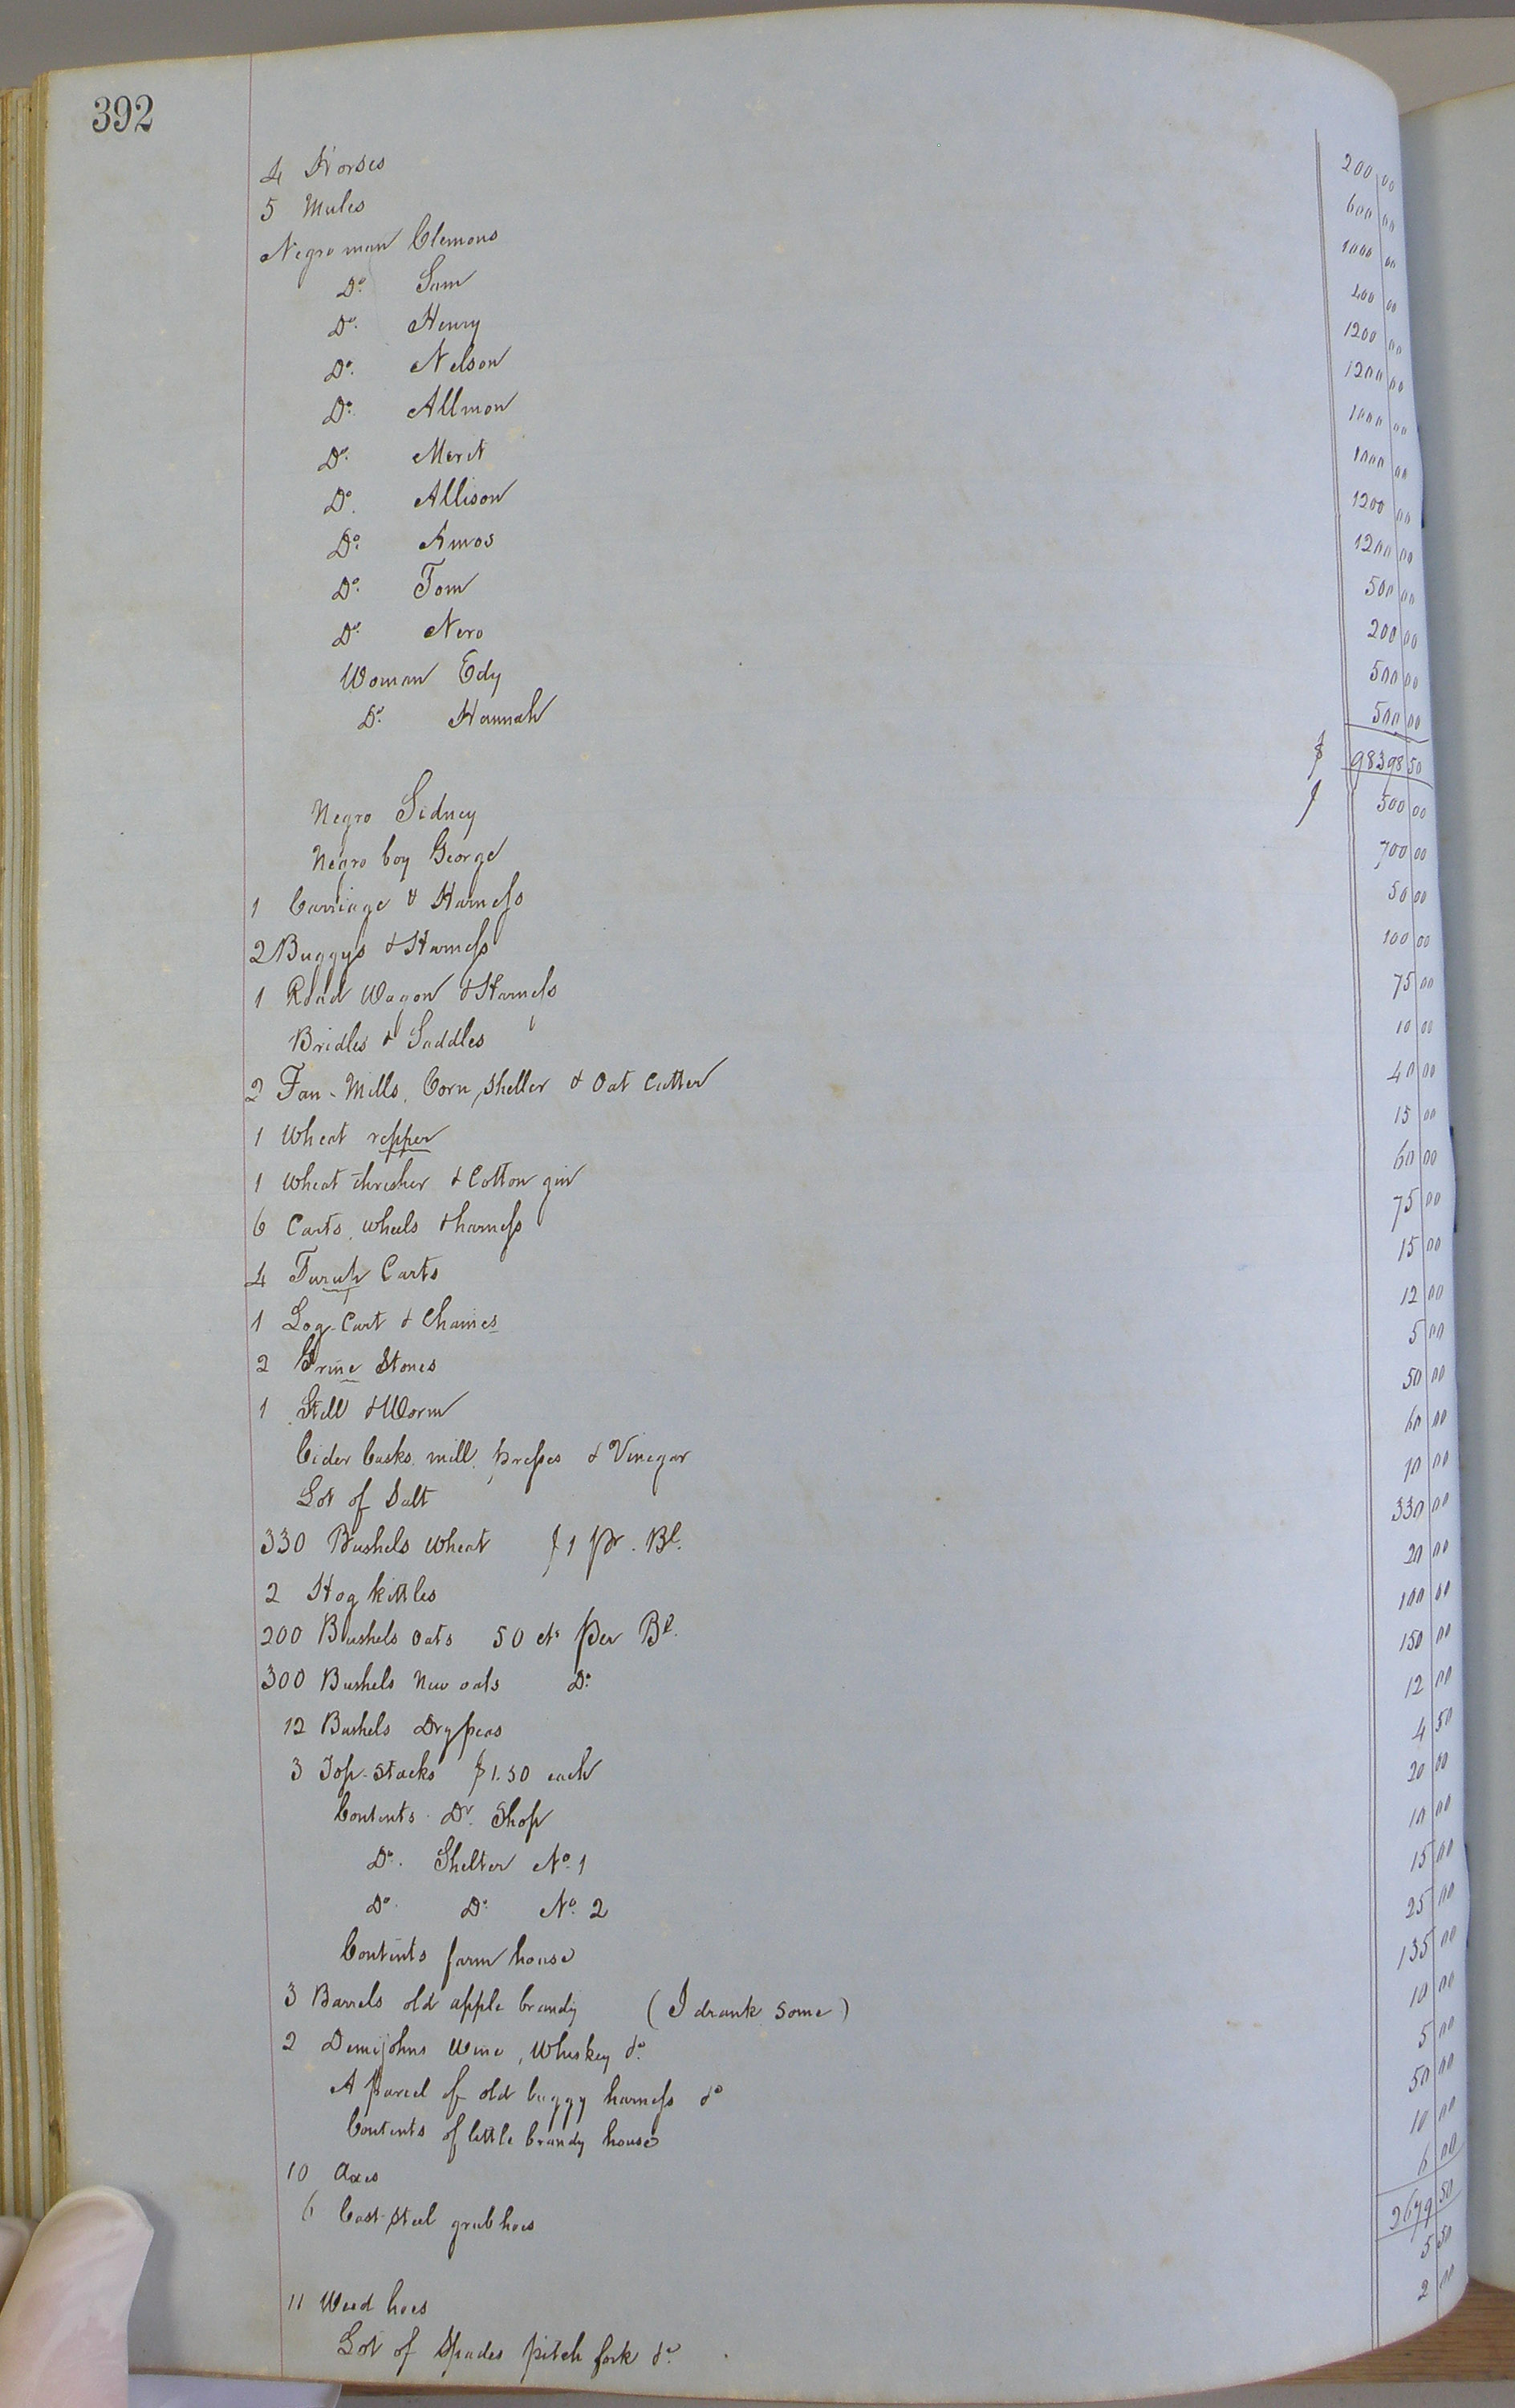 392
4 Horses 200 00
5 Mules 600 00
Negro man Clemons 1000 00
Do. Sam 400 00
Do. Henry 1200 00
Do. Nelson 1200 00
Do. Allmon 1000 00
Do. Merit 1000 00
Do. Allison 1200 00
Do. Amos 1200 00
Do. Tom 500 00
Do. Nero 200 00
Woman Edy 500 00
Do. Hannah 500 00
$ 98398 50
Negro Sidney $ 500 00
Negro boy George 700 00
1 Carriage & Harness 50 00
2 Buggys & Harness 100 00
1 Road Wagon & Harness 75 00
Bridles & Saddles 10 00
2 Fan-Mills, Corn, Sheller & Oat Cutter 40 00
1 Wheat repper 15 00
1 Wheat thresher & Cotton gin 60 00
6 Carts, wheels & harness 75 00
4 Carts 15 00
1 Log-Cart & Chaines 12 00
2 Grine Stones 5 00
1 Still & Worm 50 00
Cider Casks, mill, presses & Vinegar 60 00
Lot of Salt 10 00
330 Bushels Wheat $1 Pr. Bl. 330 00
2 Hog kittles 20 00
200 Bushels oats 50 cts per Bl. 100 00
300 Bushels New oats Do. 150 00
12 Bushels Dry peas 12 00
3 Top-Stacks $1.50 each 4 50
Contents Dr. Shop 20 00
Do. Shelter No. 1 10 00
Do. Do. No. 2 15 00
Contents farm house 25 00
3 Barrels old apple brandy (I drank some) 135 00
2 Demijohns Wine, Whiskey &c. 10 00
A parcel of old buggy harness &c 5 00
Contents of little brandy house 50 00
10 Axes 10 00
6 Cast-Steel grub hoes 6 00
2679 50
11 Weed hoes 5 50
Lot of Spades pitch fork &c. 2 00